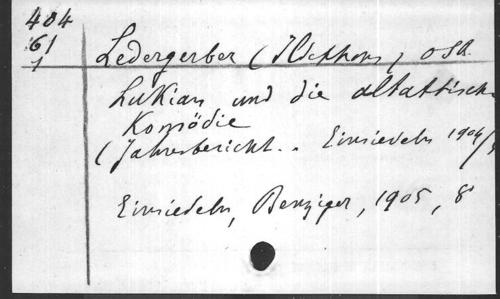 404
61
1
Ledergerber (Ildephons) OSB.
Lukian und die altattische
Komödie
(Jahresbericht .. Einsiedeln 1904/5
Einsiedeln, Benziger, 1905, 8°